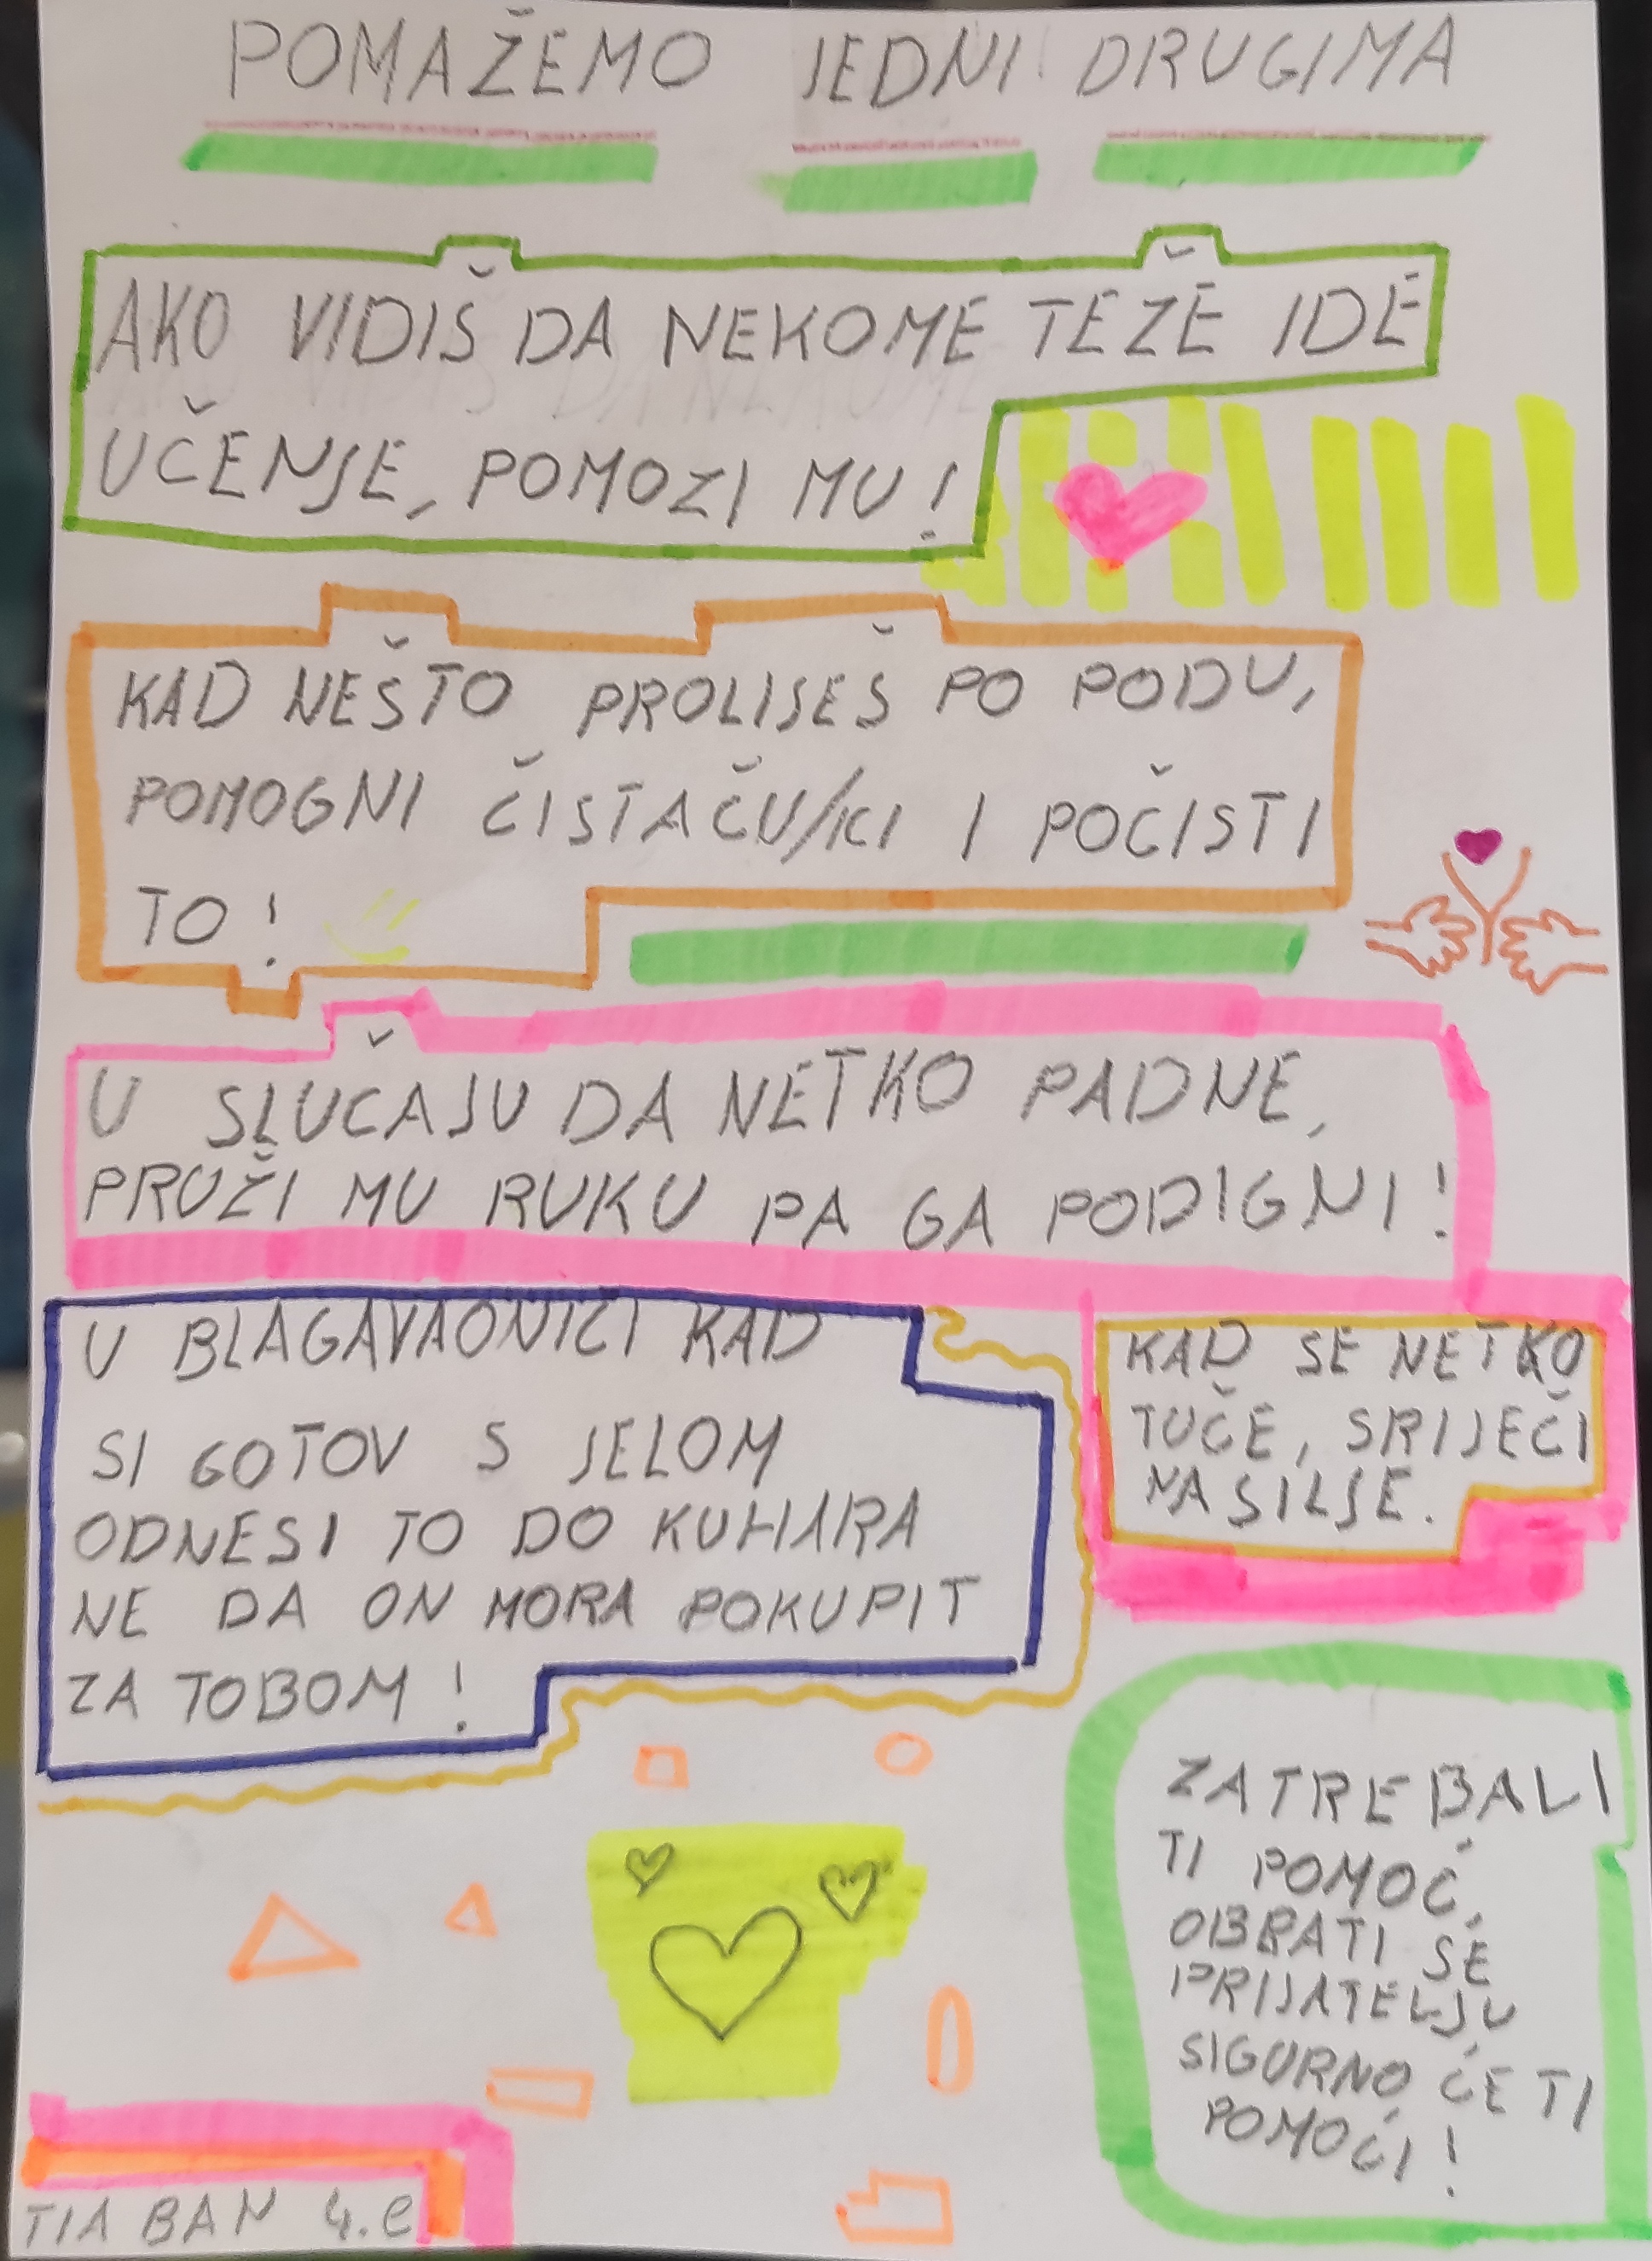 POMAŽEMO JEDNI DRUGIMA
AKO VIDIŠ DA NEKOME TEŽE IDE
UČENJE, POMOZI MU!
KAD NEŠTO PROLIJEŠ PO PODU,
POMOGNI ČISTAČU/ICI I POČISTI
TO!
U SLUČAJU DA NETKO PADNE,
PRUŽI MU RUKU PA GA PODIGNI!
U BLAGAVAONICI KAD
SI GOTOV S JELOM
ODNESI TO DO KUHARA
NE DA ON MORA POKUPIT
ZA TOBOM!
KAD SE NETKO
TUČE, SRIJEČI
NASILJE.
ZATREBALI
TI POMOĆ,
OBRATI SE
PRIJATELJU
SIGURNO ĆE TI
POMOĆI!
TIA BAN 4.e